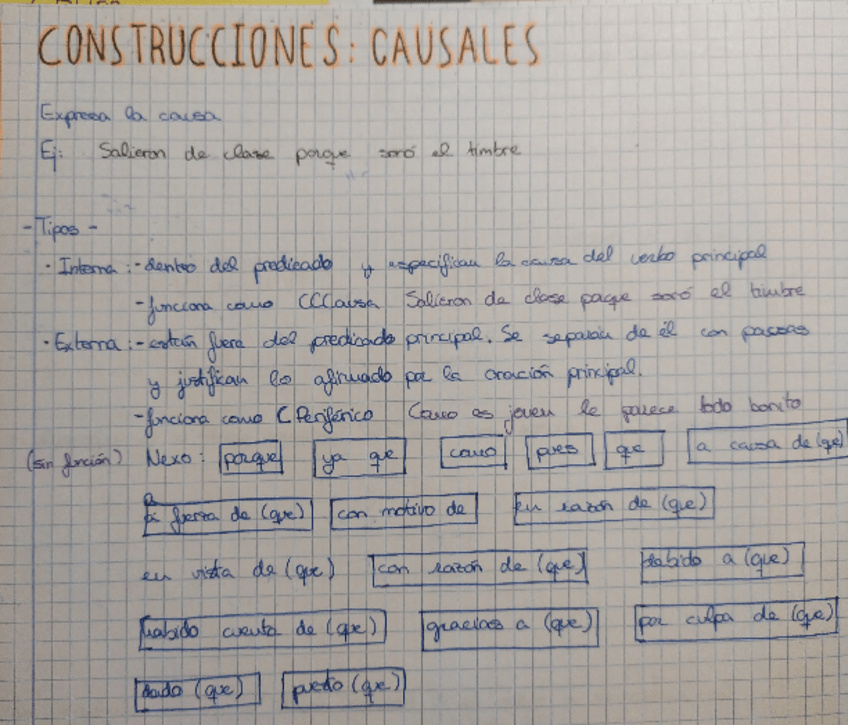 CONSTRUCCIONES: CAUSALES
Expresa la causa
Ej: Salieron de clase porque sonó el timbre
- Tipos -
· Interna: - dentro del predicado y especifican la causa del verbo principal
- funciona como CCCausa Salieron de clase porque sonó el timbre
· Externa: - están fuera del predicado principal. Se separan de él con pausas
y justifican lo afirmado por la oración principal.
- funciona como C Periférico Como es joven le parece todo bonito
(sin función) Nexo: porque ya que como pues que a causa de (que)
a fuerza de (que) con motivo de en razón de (que)
en vista de (que) con razón de (que) debido a (que)
habido cuenta de (que) gracias a (que) por culpa de (que)
dado (que) puesto (que)